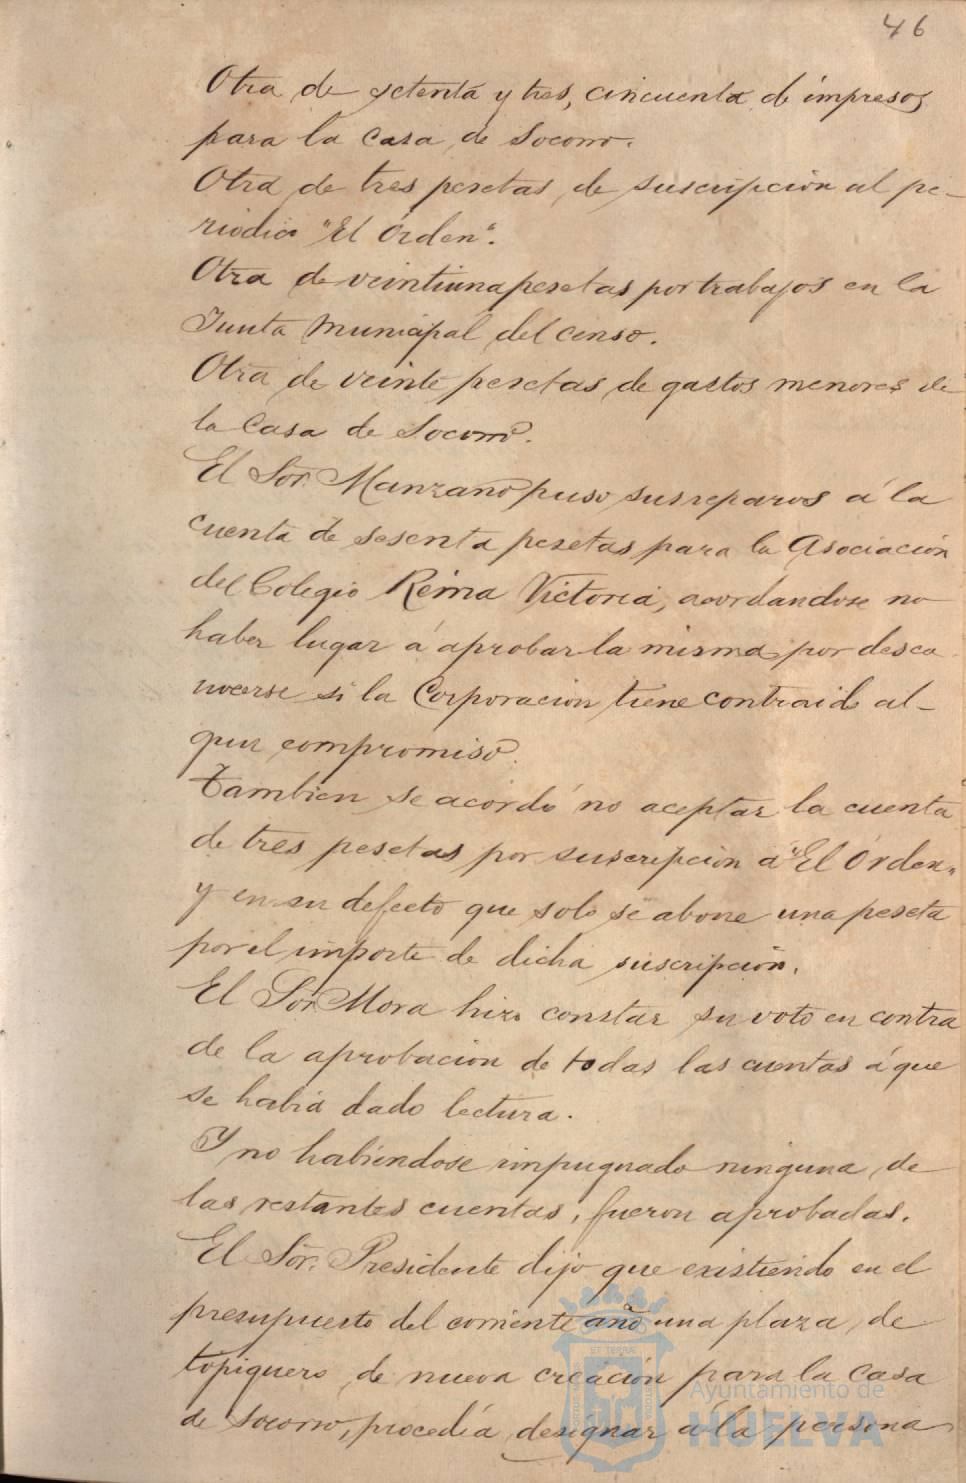 46
Otra de setenta y tres, cincuenta de impresos
para la casa de Socorro.
Otra de tres pesetas, de suscripción al pe-
riodico "El Órden".
Otra de veintiuna pesetas por trabajos en la
Junta Municipal del censo.
Otra de veinte pesetas de gastos menores de
la Casa de Socorro.
El Sor. Manzano puso sus reparos á la
cuenta de sesenta pesetas para la Asociación
del Colegio Reina Victoria, acordandose no
haber lugar á aprobar la misma por desco
nocerse si la Corporacion tiene contraido al-
gun compromiso.
Tambien se acordó no aceptar la cuenta
de tres pesetas por suscripción á "El Órden"
y en su defecto que solo se abone una peseta
por el importe de dicha suscripción.
El Sor Mora hizo constar su voto en contra
de la aprobacion de todas las cuentas á que
se habia dado lectura.
Y no habiendose impugnado ninguna de
las restantes cuentas, fueron aprobadas.
El Sor. Presidente dijo que existiendo en el
presupuesto del corriente año una plaza de
topiquero de nueva creación para la Casa
de Socorro, procedía designar á la persona
Ayuntamiento de
HUELVA